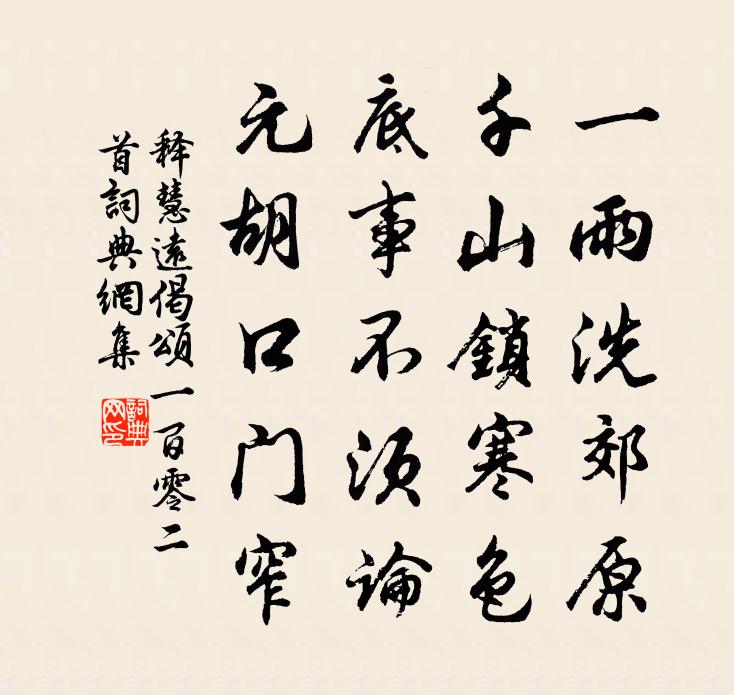 一雨洗郊原
千山鎖寒色
底事不須論
元胡口门窄
释慧遠偈頌一百零二
首詞典網集
詞典網印